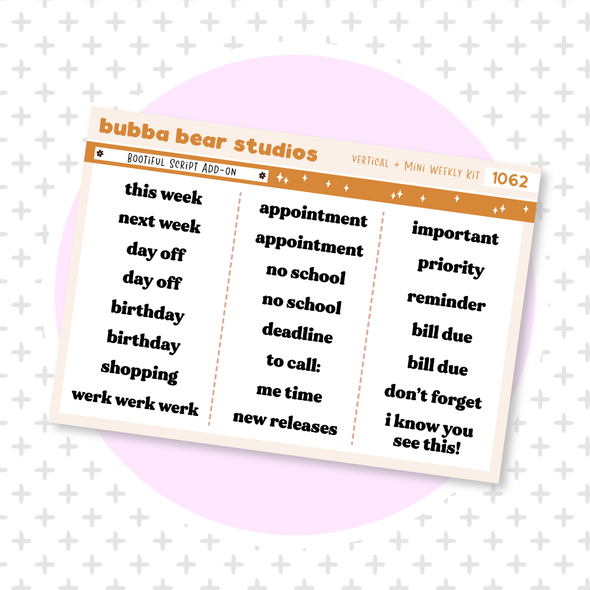 bubba bear studios
Vertical + Mini Weekly Kit
1062
Bootiful Script Add-on
this week
next week
day off
day off
birthday
birthday
shopping
werk werk werk
appointment
appointment
no school
no school
deadline
to call:
me time
new releases
important
priority
reminder
bill due
bill due
don't forget
i know you
see this!